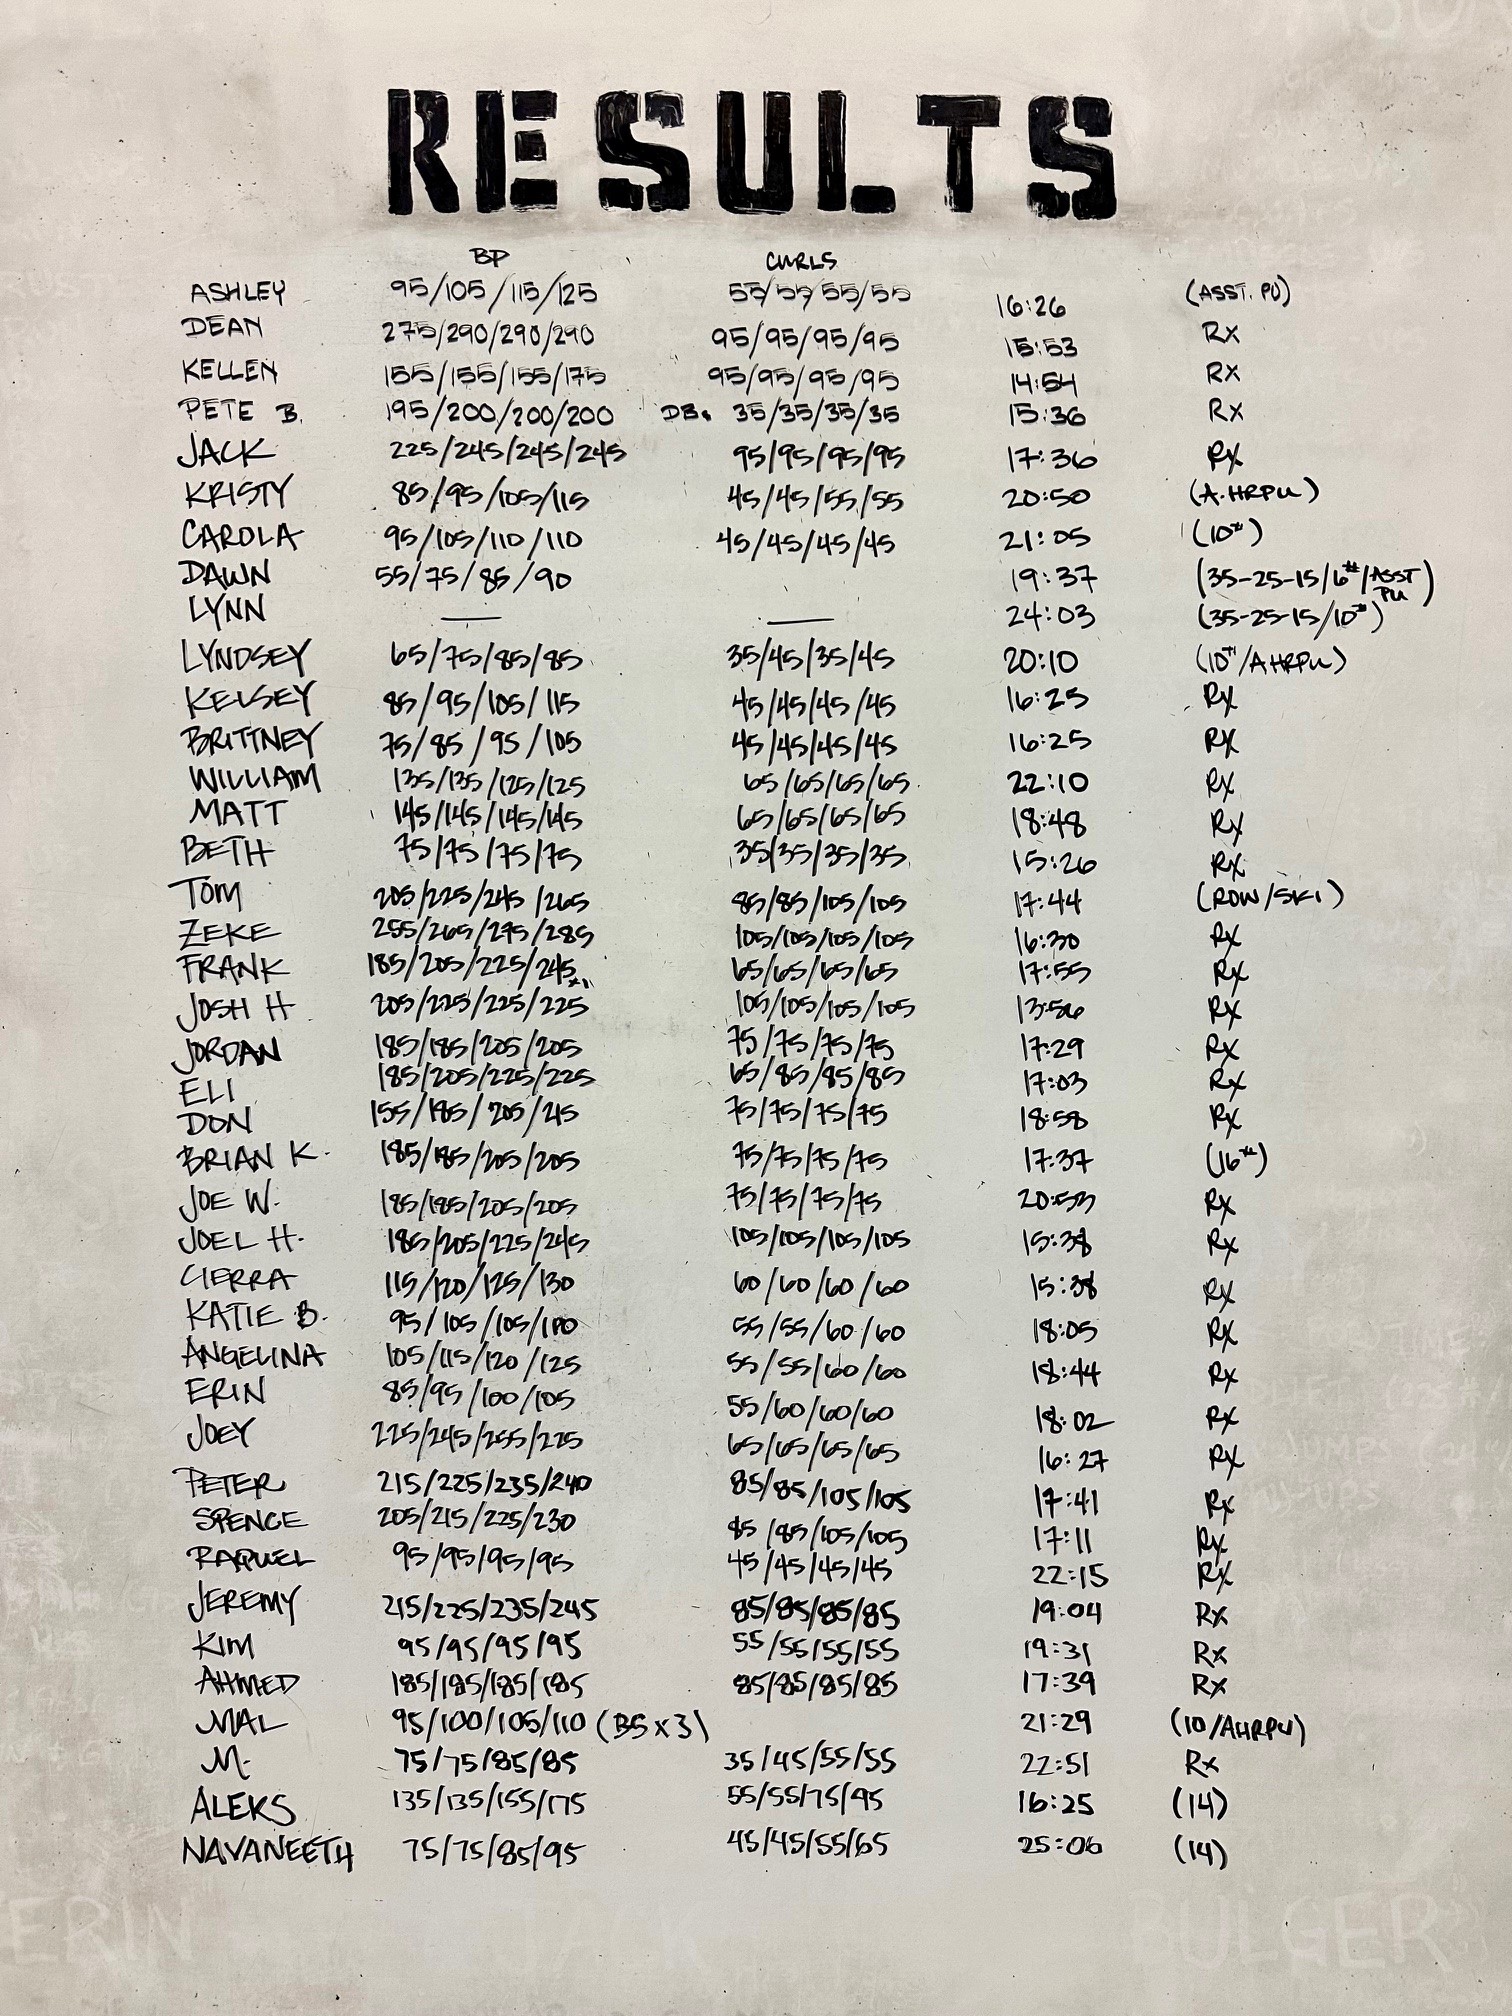 RESULTS
BP CURLS
ASHLEY 95/105/115/125 55/55/55/55 16:26 (ASST. PU)
DEAN 275/290/290/290 95/95/95/95 15:53 Rx
KELLEN 155/155/155/175 95/95/95/95 14:54 Rx
PETE B. 195/200/200/200 DB. 35/35/35/35 15:36 Rx
JACK 225/245/245/245 95/95/95/95 17:36 Rx
KRISTY 85/95/105/115 45/45/55/55 20:50 (A.HRPU)
CAROLA 95/105/110/110 45/45/45/45 21:05 (10#)
DAWN 55/75/85/90 19:37 (35-25-15/6#/ASST PU)
LYNN — — 24:03 (35-25-15/10#)
LYNDSEY 65/75/85/85 35/45/35/45 20:10 (10#/AHRPU)
KELSEY 85/95/105/115 45/45/45/45 16:25 Rx
BRITTNEY 75/85/95/105 45/45/45/45 16:25 Rx
WILLIAM 135/135/125/125 65/65/65/65 22:10 Rx
MATT 145/145/145/145 65/65/65/65 18:48 Rx
BETH 75/75/75/75 35/35/35/35 15:26 Rx
TOM 205/225/245/265 85/85/105/105 17:44 (ROW/SKI)
ZEKE 255/265/275/285 105/105/105/105 16:30 Rx
FRANK 185/205/225/245x1 65/65/65/65 17:55 Rx
JOSH H 205/225/225/225 105/105/105/105 13:56 Rx
JORDAN 185/185/205/205 75/75/75/75 17:29 Rx
ELI 185/205/225/225 65/85/85/85 17:03 Rx
DON 155/185/205/215 75/75/75/75 18:58 Rx
BRIAN K. 185/185/205/205 75/75/75/75 17:37 (16#)
JOE W. 185/185/205/205 75/75/75/75 20:53 Rx
JOEL H. 185/205/225/245 105/105/105/105 15:38 Rx
CIERRA 115/120/125/130 60/60/60/60 15:38 Rx
KATIE B. 95/105/105/110 55/55/60/60 18:05 Rx
ANGELINA 105/115/120/125 55/55/60/60 18:44 Rx
ERIN 85/95/100/105 55/60/60/60 18:02 Rx
JOEY 225/245/255/225 65/65/65/65 16:27 Rx
PETER 215/225/235/240 85/85/105/105 17:41 Rx
SPENCE 205/215/225/230 85/85/105/105 17:11 Rx
RAQUEL 95/95/95/95 45/45/45/45 22:15 Rx
JEREMY 215/225/235/245 85/85/85/85 19:04 Rx
KIM 95/95/95/95 55/55/55/55 19:31 Rx
AHMED 185/185/185/185 85/85/85/85 17:39 Rx
MAL 95/100/105/110 (BS x 3) 21:29 (10/AHRPU)
M. 75/75/85/85 35/45/55/55 22:51 Rx
ALEKS 135/135/155/175 55/55/75/95 16:25 (14)
NAVANEETH 75/75/85/95 45/45/55/65 25:06 (14)
ERIN JACK BULGER